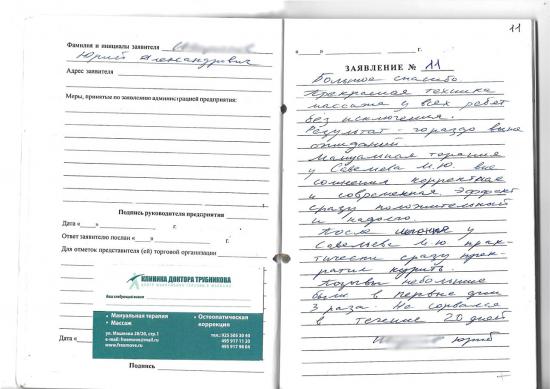 Фамилия и инициалы заявителя
Юрий Александрович
Адрес заявителя
Меры, принятые по заявлению администрацией предприятия:
Подпись руководителя предприятия
Дата « » г.
Ответ заявителю послан « » г.
Для отметок представителя (ей) торговой организации
КЛИНИКА ДОКТОРА ТРУБНИКОВА
Ваш следующий визит
• Мануальная терапия
• Массаж
• Остеопатическая
коррекция
ул. Машкова 28/20, стр.1
e-mail: freemove@mail.ru
http://www.freemove.ru
тел.: 925 506 30 40
495 917 11 20
495 917 96 04
Дата «
Подпись
11
« » г.
ЗАЯВЛЕНИЕ № 11
Большое спасибо
Прекрасная техника
массажа у всех ребят
без исключения.
Результат - гораздо выше
ожиданий.
Мануальная терапия
у Савельева М.Ю. вне
сомнения корректная
и современная. Эффект
сразу положительный
и надолго.
После у
Савельева М.Ю. прак-
тически сразу прек-
ратил курить.
Позывы небольшие
были в первые дни
3 раза. Не сорвался
в течение 20 дней
Юрий